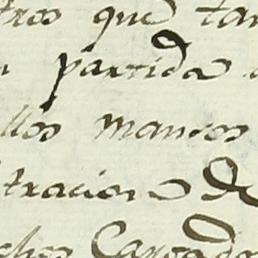 tros que tan
partida
llos mansos
tracion de
ches Cargado